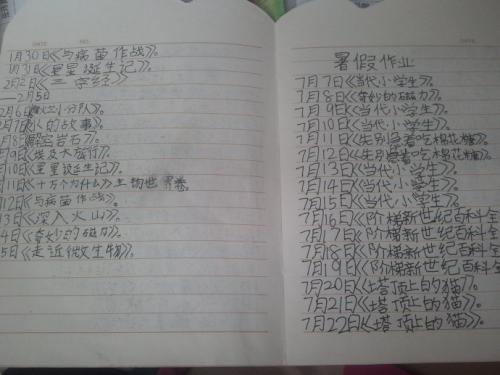 1月30日《与病菌作战》。
1月31日《星星诞生记》。
2月2日《三字经》
——2月5日
2月6日小分队》。
2月7日《水的故事》。
月8日岩石》。
月9日《埃及大旅行》。
月10日《星星诞生记》。
月11日《十万个为什么》生物世界卷。
月12日《与病菌作战》。
13日《深入火山》。
4日《奇妙的磁力》。
5日《走近微生物》。
DATE
暑假作业
7月7日《当代小学生》。
7月8日《奇妙的磁力》。
7月9日《当代小学生》。
7月10日《当代小学生》。
7月11日《先别急着吃棉花糖》。
7月12日《先别急着吃棉花糖》。
7月13日《当代小学生》。
7月14日《当代小学生》。
7月15日《当代小学生》。
7月16日《阶梯新世纪百科全
7月17日《阶梯新世纪百科全
7月18日《阶梯新世纪百科全
7月19日《阶梯新世纪百科全
7月20日《塔顶上的猫》。
7月21日《塔顶上的猫》。
7月22日《塔顶上的猫》。